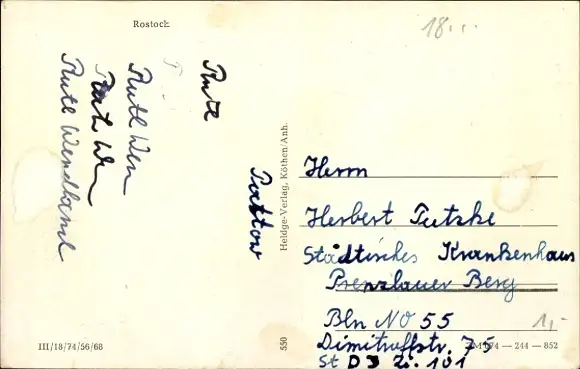 Rostock
18...
Rute
Ruth Wen
Ruth Wen
Ruth Wendland
Pattow
Heldge-Verlag, Köthen/Anh.
Herrn
Herbert Putzke
Städtisches Krankenhaus
Prenzlauer Berg
Bln NO 55
1,-
Dimitroffstr. 75
St D3 Zi. 101
III/18/74/56/68
550
174 — 244 — 852